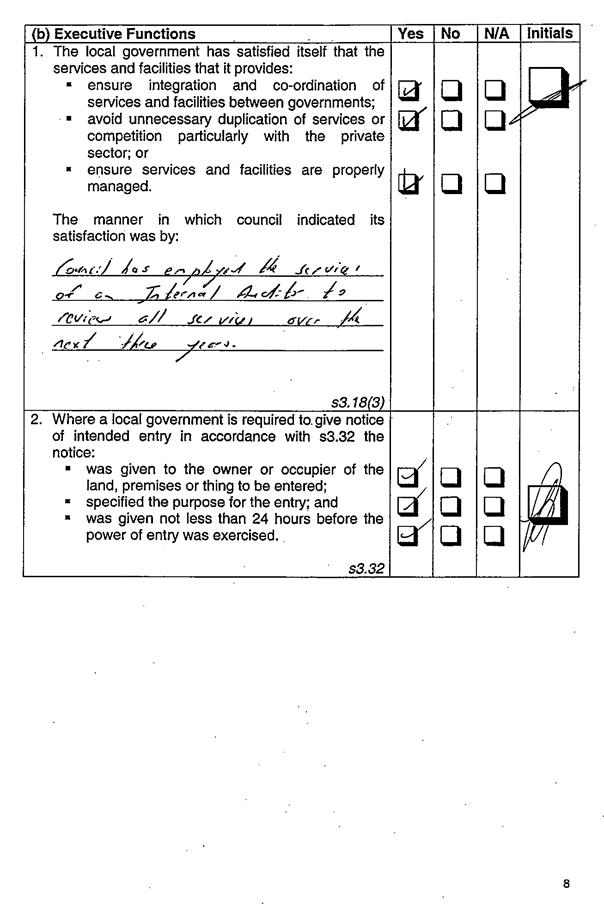 (b) Executive Functions Yes No N/A Initials
1. The local government has satisfied itself that the
services and facilities that it provides:
▪ ensure integration and co-ordination of
services and facilities between governments;
▪ avoid unnecessary duplication of services or
competition particularly with the private
sector; or
▪ ensure services and facilities are properly
managed.
The manner in which council indicated its
satisfaction was by:
Council has employed the services
of an Internal Auditor to
review all services over the
next three years.
s3.18(3)
2. Where a local government is required to give notice
of intended entry in accordance with s3.32 the
notice:
▪ was given to the owner or occupier of the
land, premises or thing to be entered;
▪ specified the purpose for the entry; and
▪ was given not less than 24 hours before the
power of entry was exercised.
s3.32
8